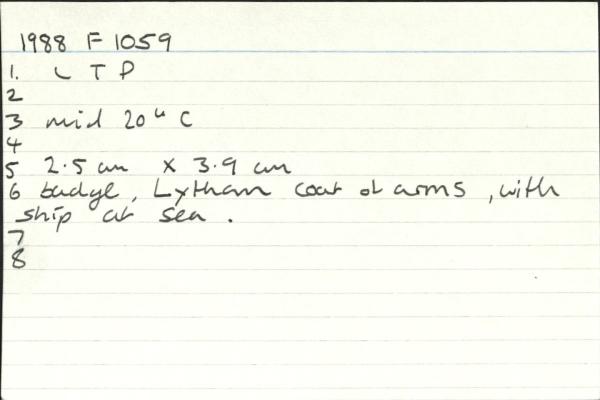 1988 F 1059
1. L T P
2
3 mid 20th C
4
5 2.5 cm x 3.9 cm
6 badge, Lytham coat of arms, with
ship at sea.
7
8